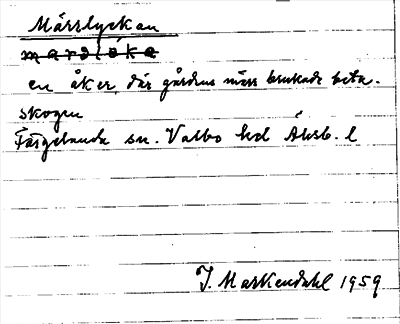 Märrlyckan
mardlöka
en åker, där gårdens märr brukade beta.
skogen
Färgelanda sn. Valbo hd Älvsb. l
J. Markendahl 1959